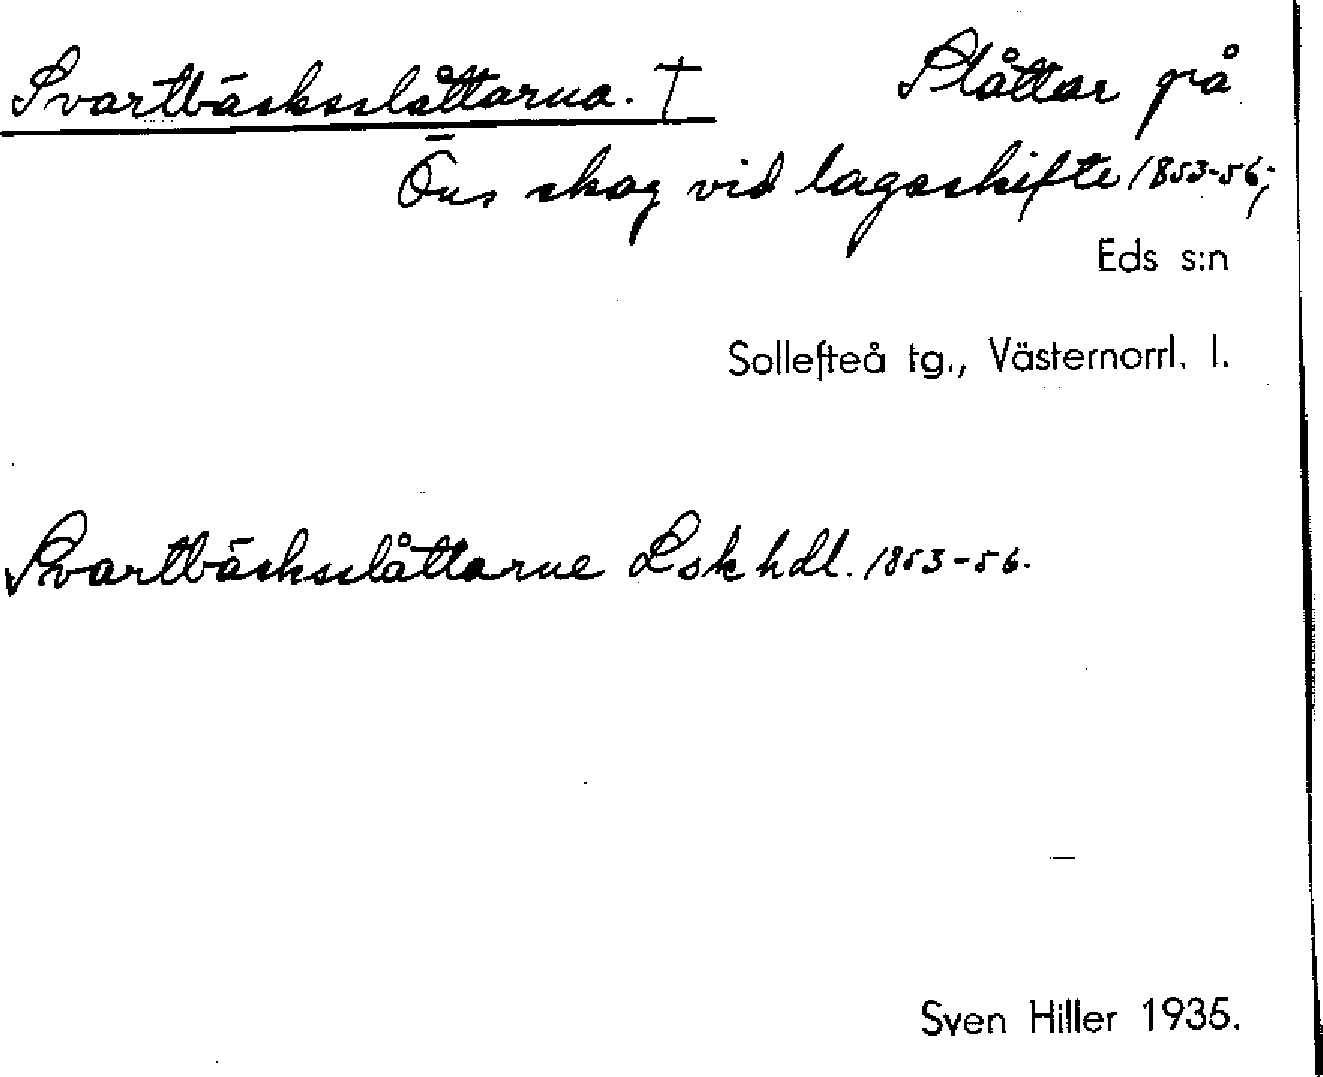 Svartbäcksslåttarna. † Slåttar på
Öns skog vid lagaskifte 1853-56;
Eds s:n
Sollefteå tg., Västernorrl. l.
Svartbäcksslåttarne Lsk hdl. 1853-56.
Sven Hiller 1935.